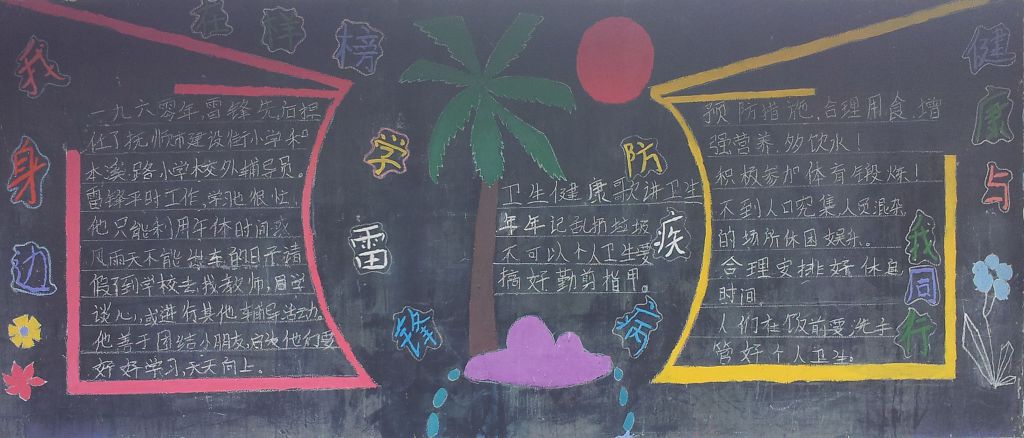 我身边
在样榜
一九六零年,雷锋先后担
任了抚顺师建设街小学和
本溪路小学校外辅导员。
雷锋平时工作,学习很忙,
他只能利用午休时间或
风雨天不能出车的日子请
假到学校去找教师,同学
谈心,或进行其他车辅导活动。
他善于团结小朋友,
好好学习,天天向上。
学雷锋
卫生健康歌讲卫生
年年记乱扔垃圾
不可以个人卫生要
搞好勤剪指甲。
防疾
健康与
我同行
预防措施,合理用食,增
强营养,多饮水!
积极参加体育锻炼!
不到人口密集人员混杂
的场所休闲娱乐。
合理安排好休息
时间,
人们在饭前要洗手
管好个人卫生。